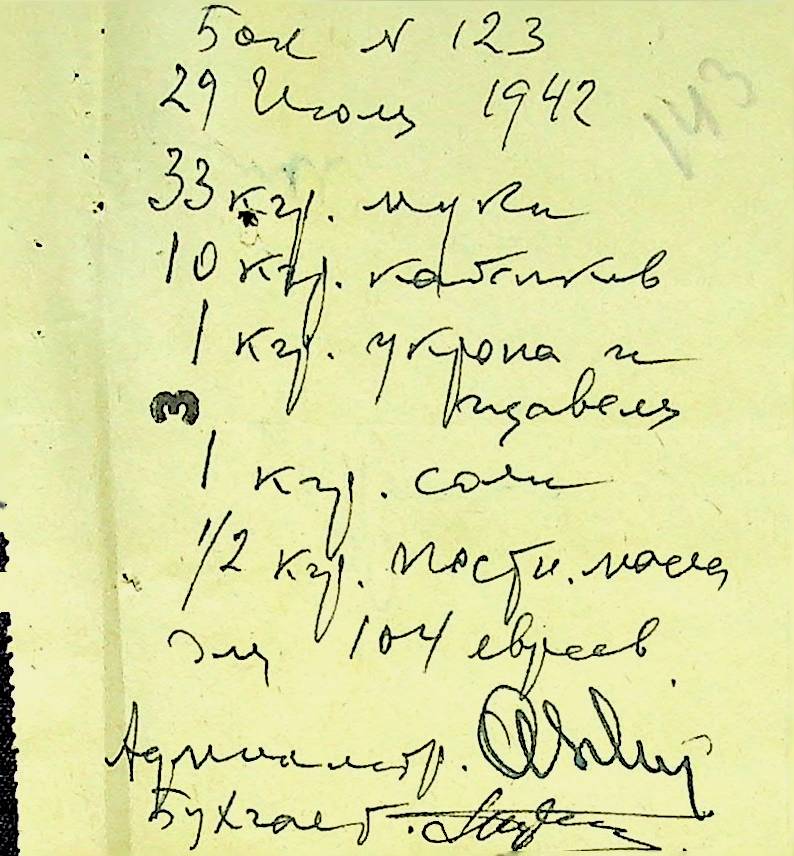 Бон N 123
143
29 Июля 1942
33 кгр. муки
10 кгр. кабачков
1 кгр. укропа и
щавеля
3
1 кгр. соли
1/2 кгр. постн. масла
для 104 евреев
Администр.
Бухгалт.